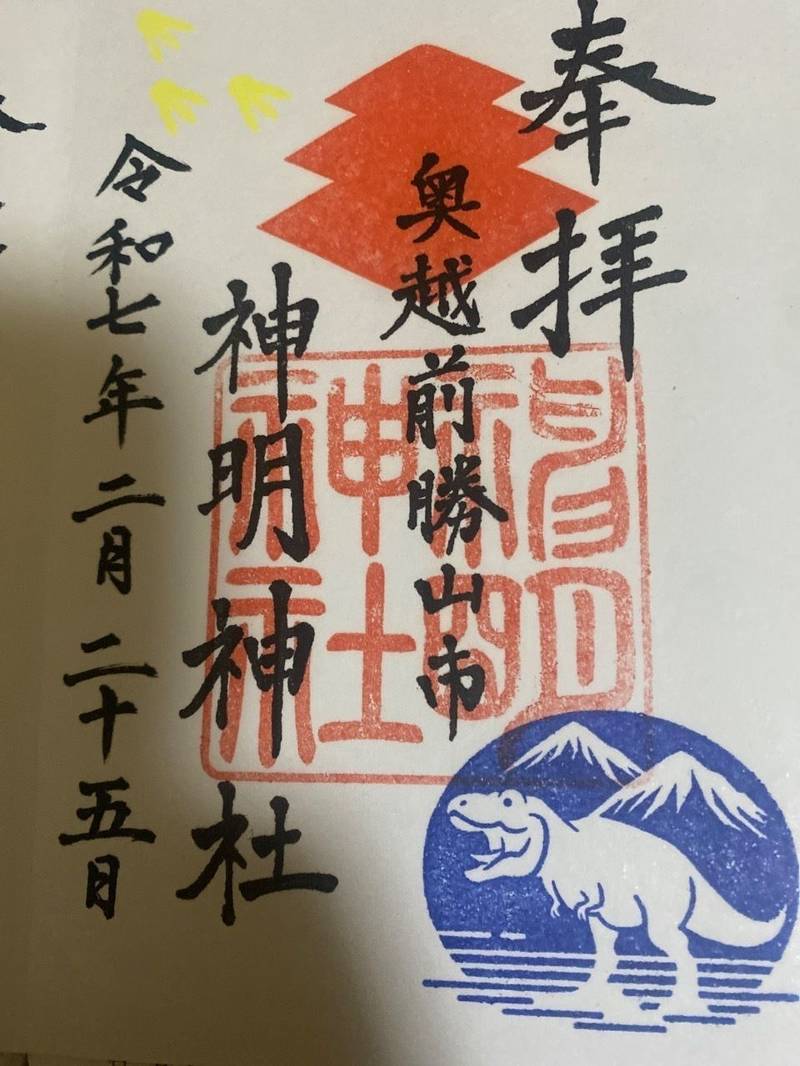 奉拝
奥越前勝山市
神明神社
令和七年二月二十五日